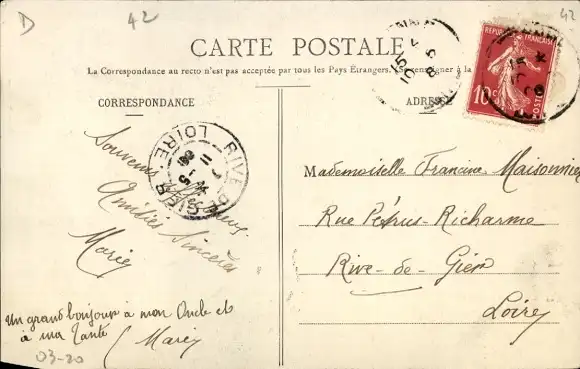 D
42
42
CARTE POSTALE
La Correspondance au recto n'est pas acceptée par tous les Pays Étrangers. Se renseigner à la
CORRESPONDANCE
ADRESSE
RÉPUBLIQUE FRANÇAISE
10c
POSTES
RIVE-DE-GIER
LOIRE
Souvenir
Amitiés Sincères
Marie
Un grand bonjour à mon Oncle et
à ma Tante
Marie
03-20
Mademoiselle Francine Maisonnier
Rue Pétrus-Richarme
Rive-de-Gier
Loire